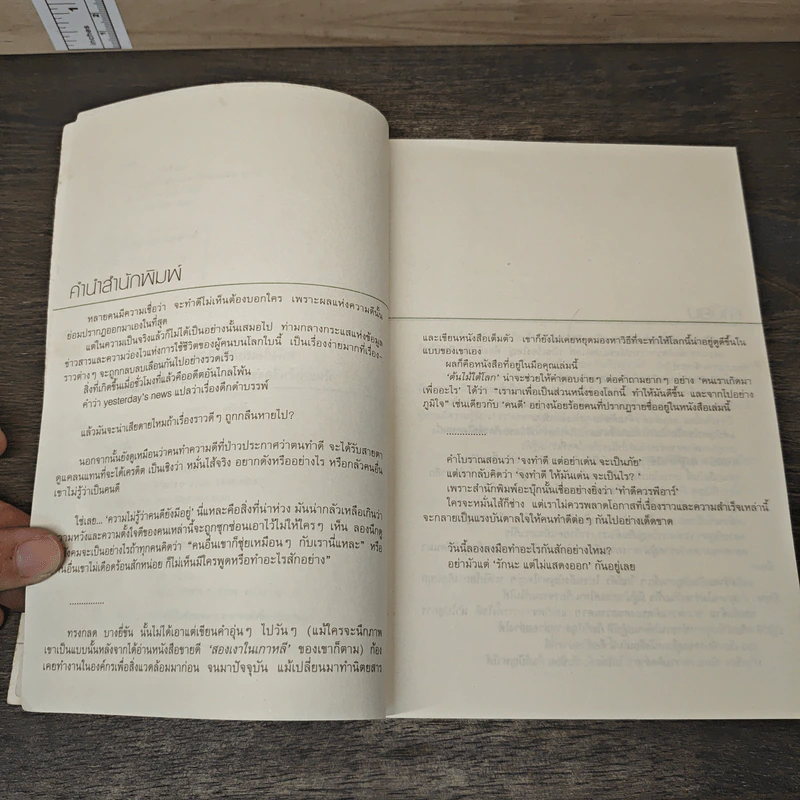 inches
1
2
คำนำสำนักพิมพ์
หลายคนมีความเชื่อว่า จะทำดีไม่เห็นต้องบอกใคร เพราะผลแห่งความดีนั้น
ย่อมปรากฏออกมาเองในที่สุด
แต่ในความเป็นจริงแล้วก็ไม่ได้เป็นอย่างนั้นเสมอไป ท่ามกลางกระแสแห่งข้อมูล
ข่าวสารและความว่องไวแห่งการใช้ชีวิตของผู้คนบนโลกใบนี้ เป็นเรื่องง่ายมากที่เรื่อง-
ราวต่างๆ จะถูกลบลบเลือนกันไปอย่างรวดเร็ว
สิ่งที่เกิดขึ้นเมื่อชั่วโมงที่แล้วคืออดีตอันไกลโพ้น
คำว่า yesterday's news แปลว่าเรื่องดึกดำบรรพ์
แล้วมันจะน่าเสียดายไหมถ้าเรื่องราวดีๆ ถูกกลืนหายไป?
นอกจากนั้นยังดูเหมือนว่าคนทำความดีที่ป่าวประกาศว่าตนทำดี จะได้รับสายตา
ดูแคลนแทนที่จะได้เครดิต เป็นเชิงว่า หมั่นไส้จริง อยากดังหรืออย่างไร หรือกลัวคนอื่น
เขาไม่รู้ว่าเป็นคนดี
ใช่เลย... 'ความไม่รู้ว่าคนดียังมีอยู่' นี่แหละคือสิ่งที่น่าห่วง มันน่ากลัวเหลือเกินว่า
ความหวังและความตั้งใจดีของคนเหล่านี้จะถูกซุกซ่อนเอาไว้ไม่ให้ใครๆ เห็น ลองนึกดู
สังคมจะเป็นอย่างไรถ้าทุกคนคิดว่า "คนอื่นเขาก็ชุ่ยเหมือนๆ กับเรานี่แหละ" หรือ
คนอื่นเขาไม่เดือดร้อนสักหน่อย ก็ไม่เห็นมีใครพูดหรือทำอะไรสักอย่าง"
...............
ทรงกลด บางยี่ขัน นั้นไม่ได้เอาแต่เขียนคำอุ่นๆ ไปวันๆ (แม้ใครจะนึกภาพ
เขาเป็นแบบนั้นหลังจากได้อ่านหนังสือขายดี 'สองเงาในเกาหลี' ของเขาก็ตาม) ก้อง
เคยทำงานในองค์กรเพื่อสิ่งแวดล้อมมาก่อน จนมาปัจจุบัน แม้เปลี่ยนมาทำนิตยสาร
และเขียนหนังสือเต็มตัว เขาก็ยังไม่เคยหยุดมองหาวิธีที่จะทำให้โลกนี้น่าอยู่ดูดีขึ้นใน
แบบของเขาเอง
ผลก็คือหนังสือที่อยู่ในมือคุณเล่มนี้
'ต้นไม้ใต้โลก' น่าจะช่วยให้คำตอบง่ายๆ ต่อคำถามยากๆ อย่าง 'คนเราเกิดมา
เพื่ออะไร' ได้ว่า "เรามาเพื่อเป็นส่วนหนึ่งของโลกนี้ ทำให้มันดีขึ้น และจากไปอย่าง
ภูมิใจ" เช่นเดียวกับ 'คนดี' อย่างน้อยร้อยคนที่ปรากฏรายชื่ออยู่ในหนังสือเล่มนี้
...............
คำโบราณสอนว่า 'จงทำดี แต่อย่าเด่น จะเป็นภัย'
แต่เรากลับคิดว่า 'จงทำดี ให้มันเด่น จะเป็นไร? '
เพราะสำนักพิมพ์อะบุ๊กนั้นเชื่ออย่างยิ่งว่า 'ทำดีควรพีอาร์'
ใครจะหมั่นไส้ก็ช่าง แต่เราไม่ควรพลาดโอกาสที่เรื่องราวและความสำเร็จเหล่านี้
จะกลายเป็นแรงบันดาลใจให้คนทำดีต่อๆ กันไปอย่างเด็ดขาด
วันนี้ลองลงมือทำอะไรกันสักอย่างไหม?
อย่ามัวแต่ 'รักนะ แต่ไม่แสดงออก' กันอยู่เลย